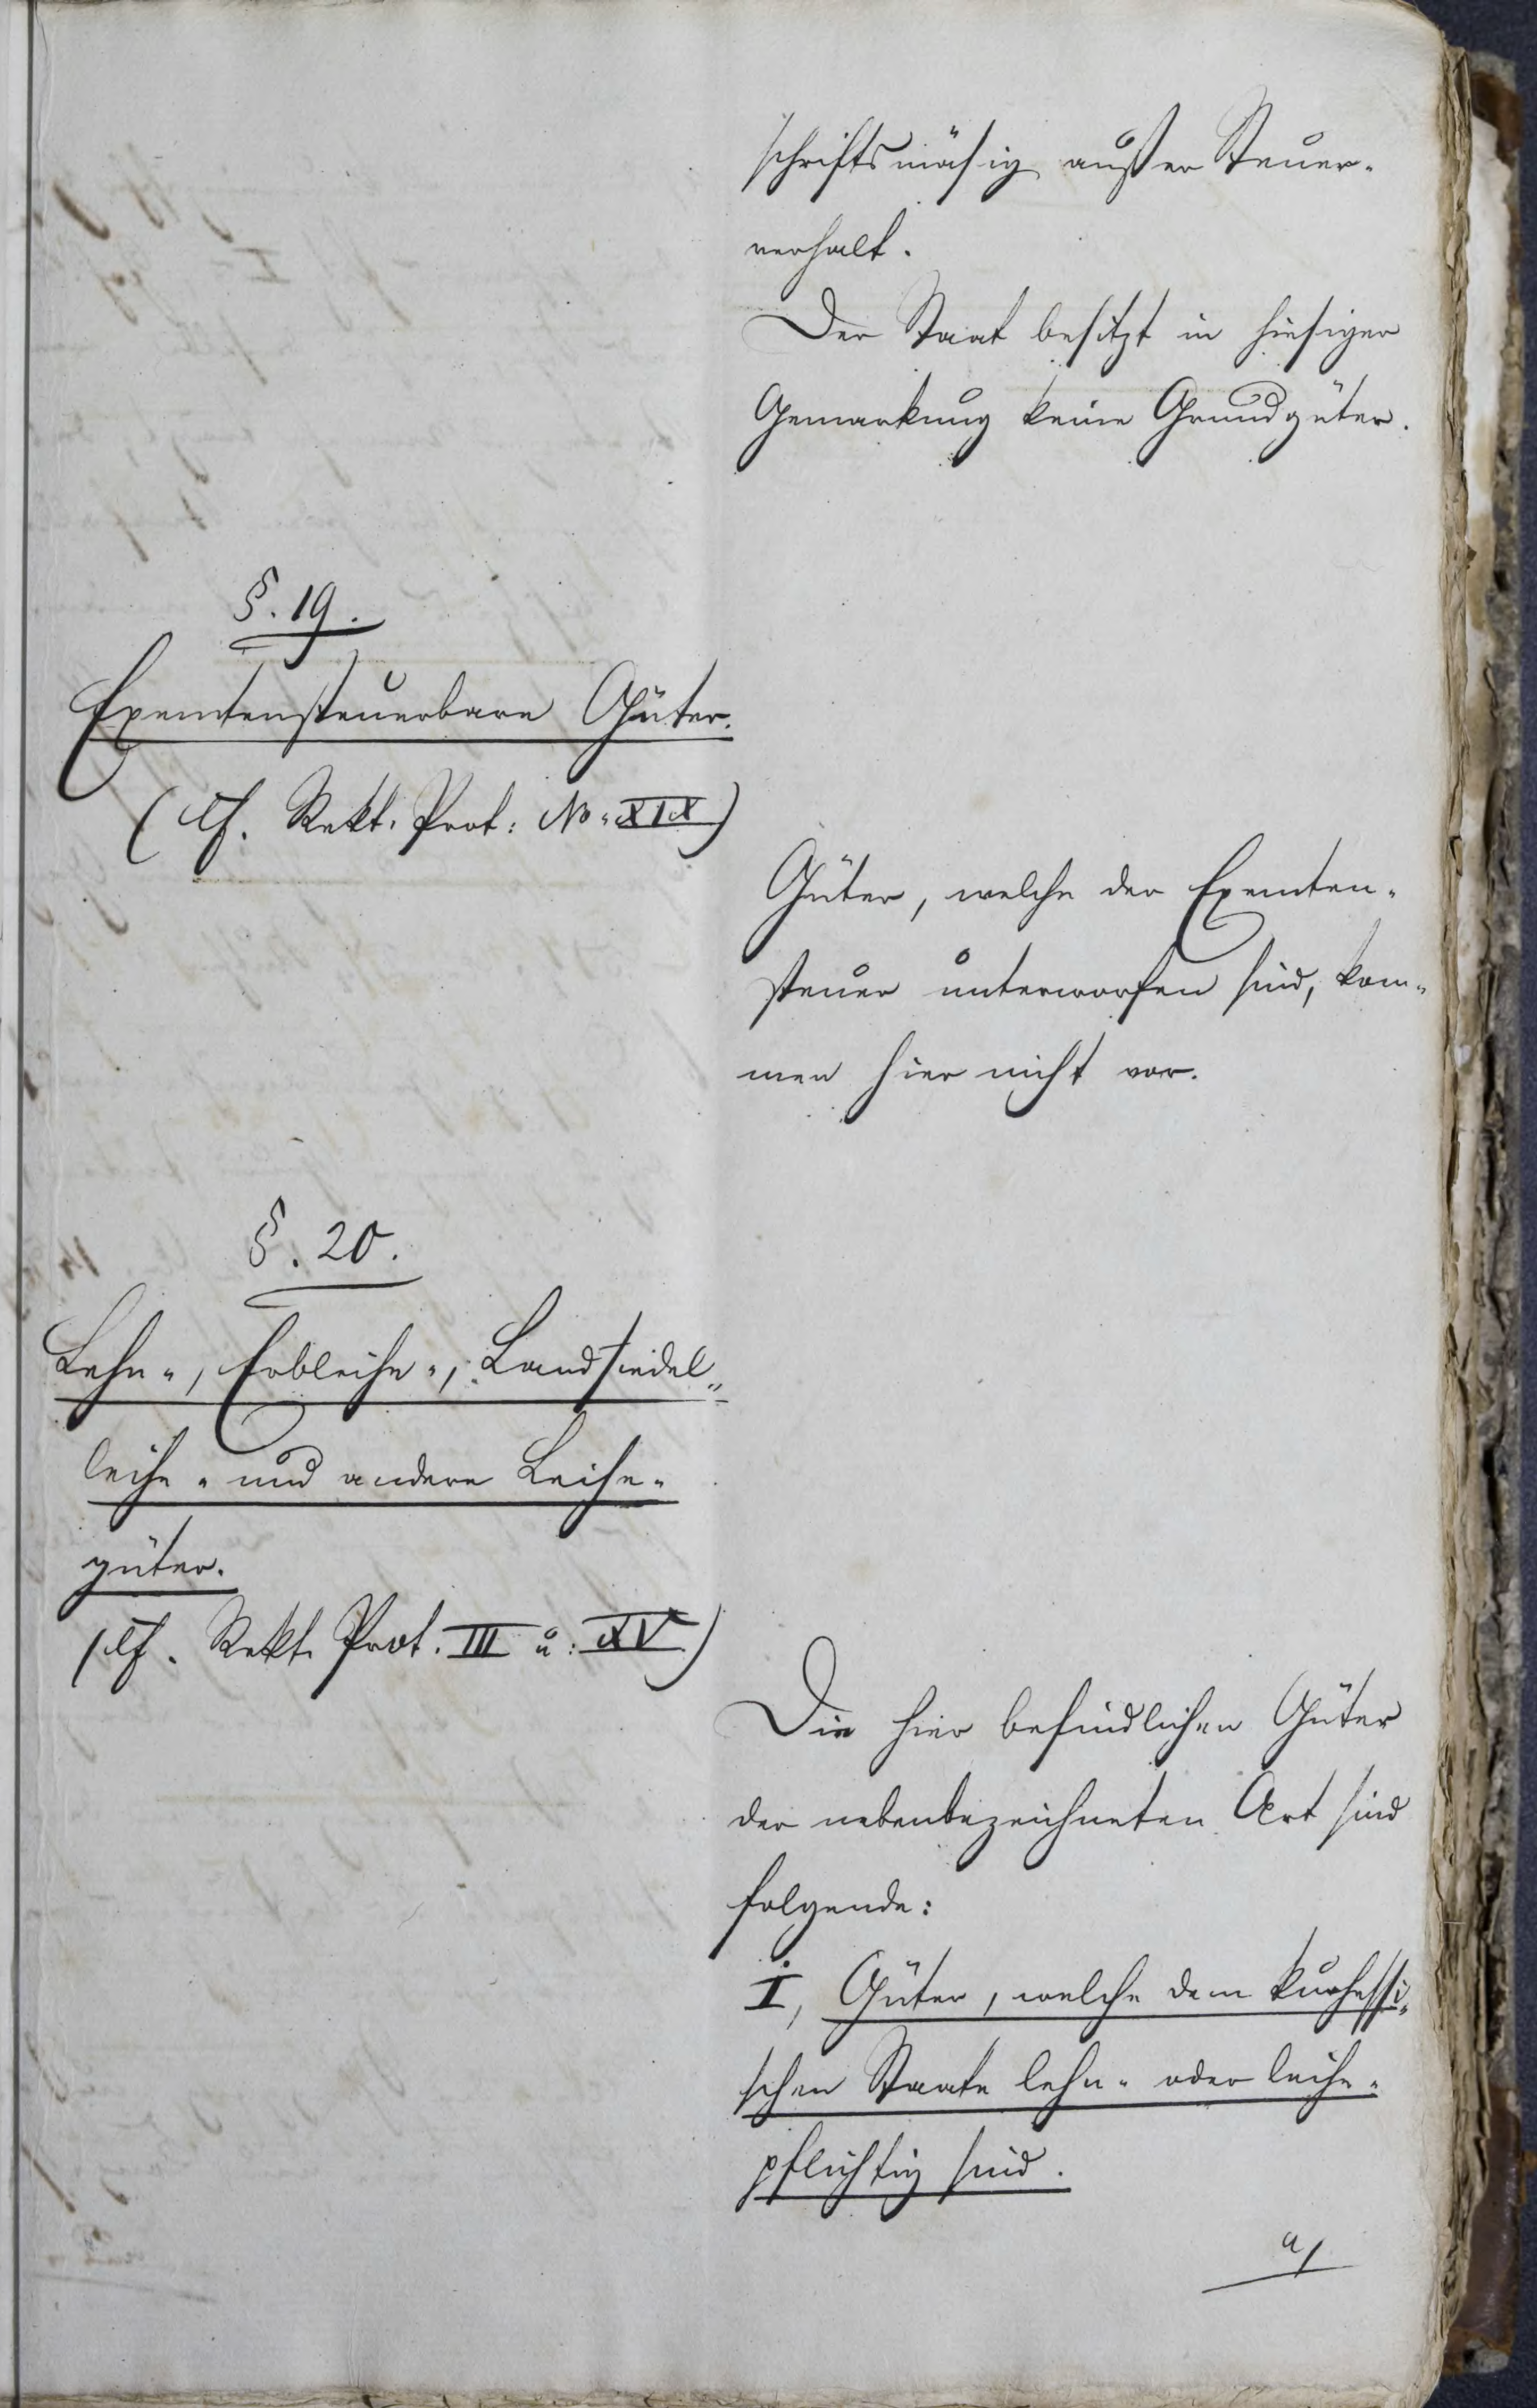 schriftsmäsig außer Steuer-
verhalt.
Der Staat besitzt in hiesiger
Gemarkung keine Grundgüter.
§. 19.
Exemtensteuerbare Güter.
(cf. Rekt. Prot: No. XIX)
Güter, welche der Exemten-
steuer unterworfen sind, kom-
men hier nicht vor.
§. 20.
Lehn-, Erbleihe-, Landsiedel-
leihe- und andere Leihe-
güter.
(cf. Rekt. Prot. III u: XV)
Die hier befindlichen Güter
der nebenbezeichneten Art sind
folgende:
I, Güter, welche dem kurhessi-
schen Staate lehn- oder leihe-
pflichtig sind.
a/